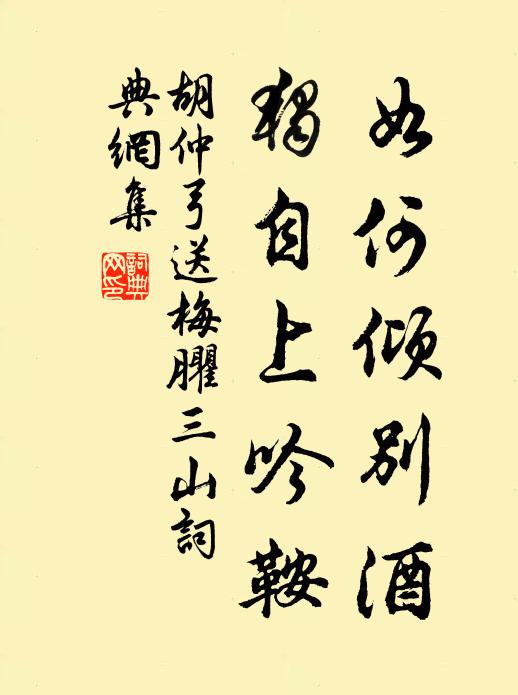 如何傾別酒
獨自上吟鞍
胡仲弓送梅臞三山詞
典網集
詞典網印